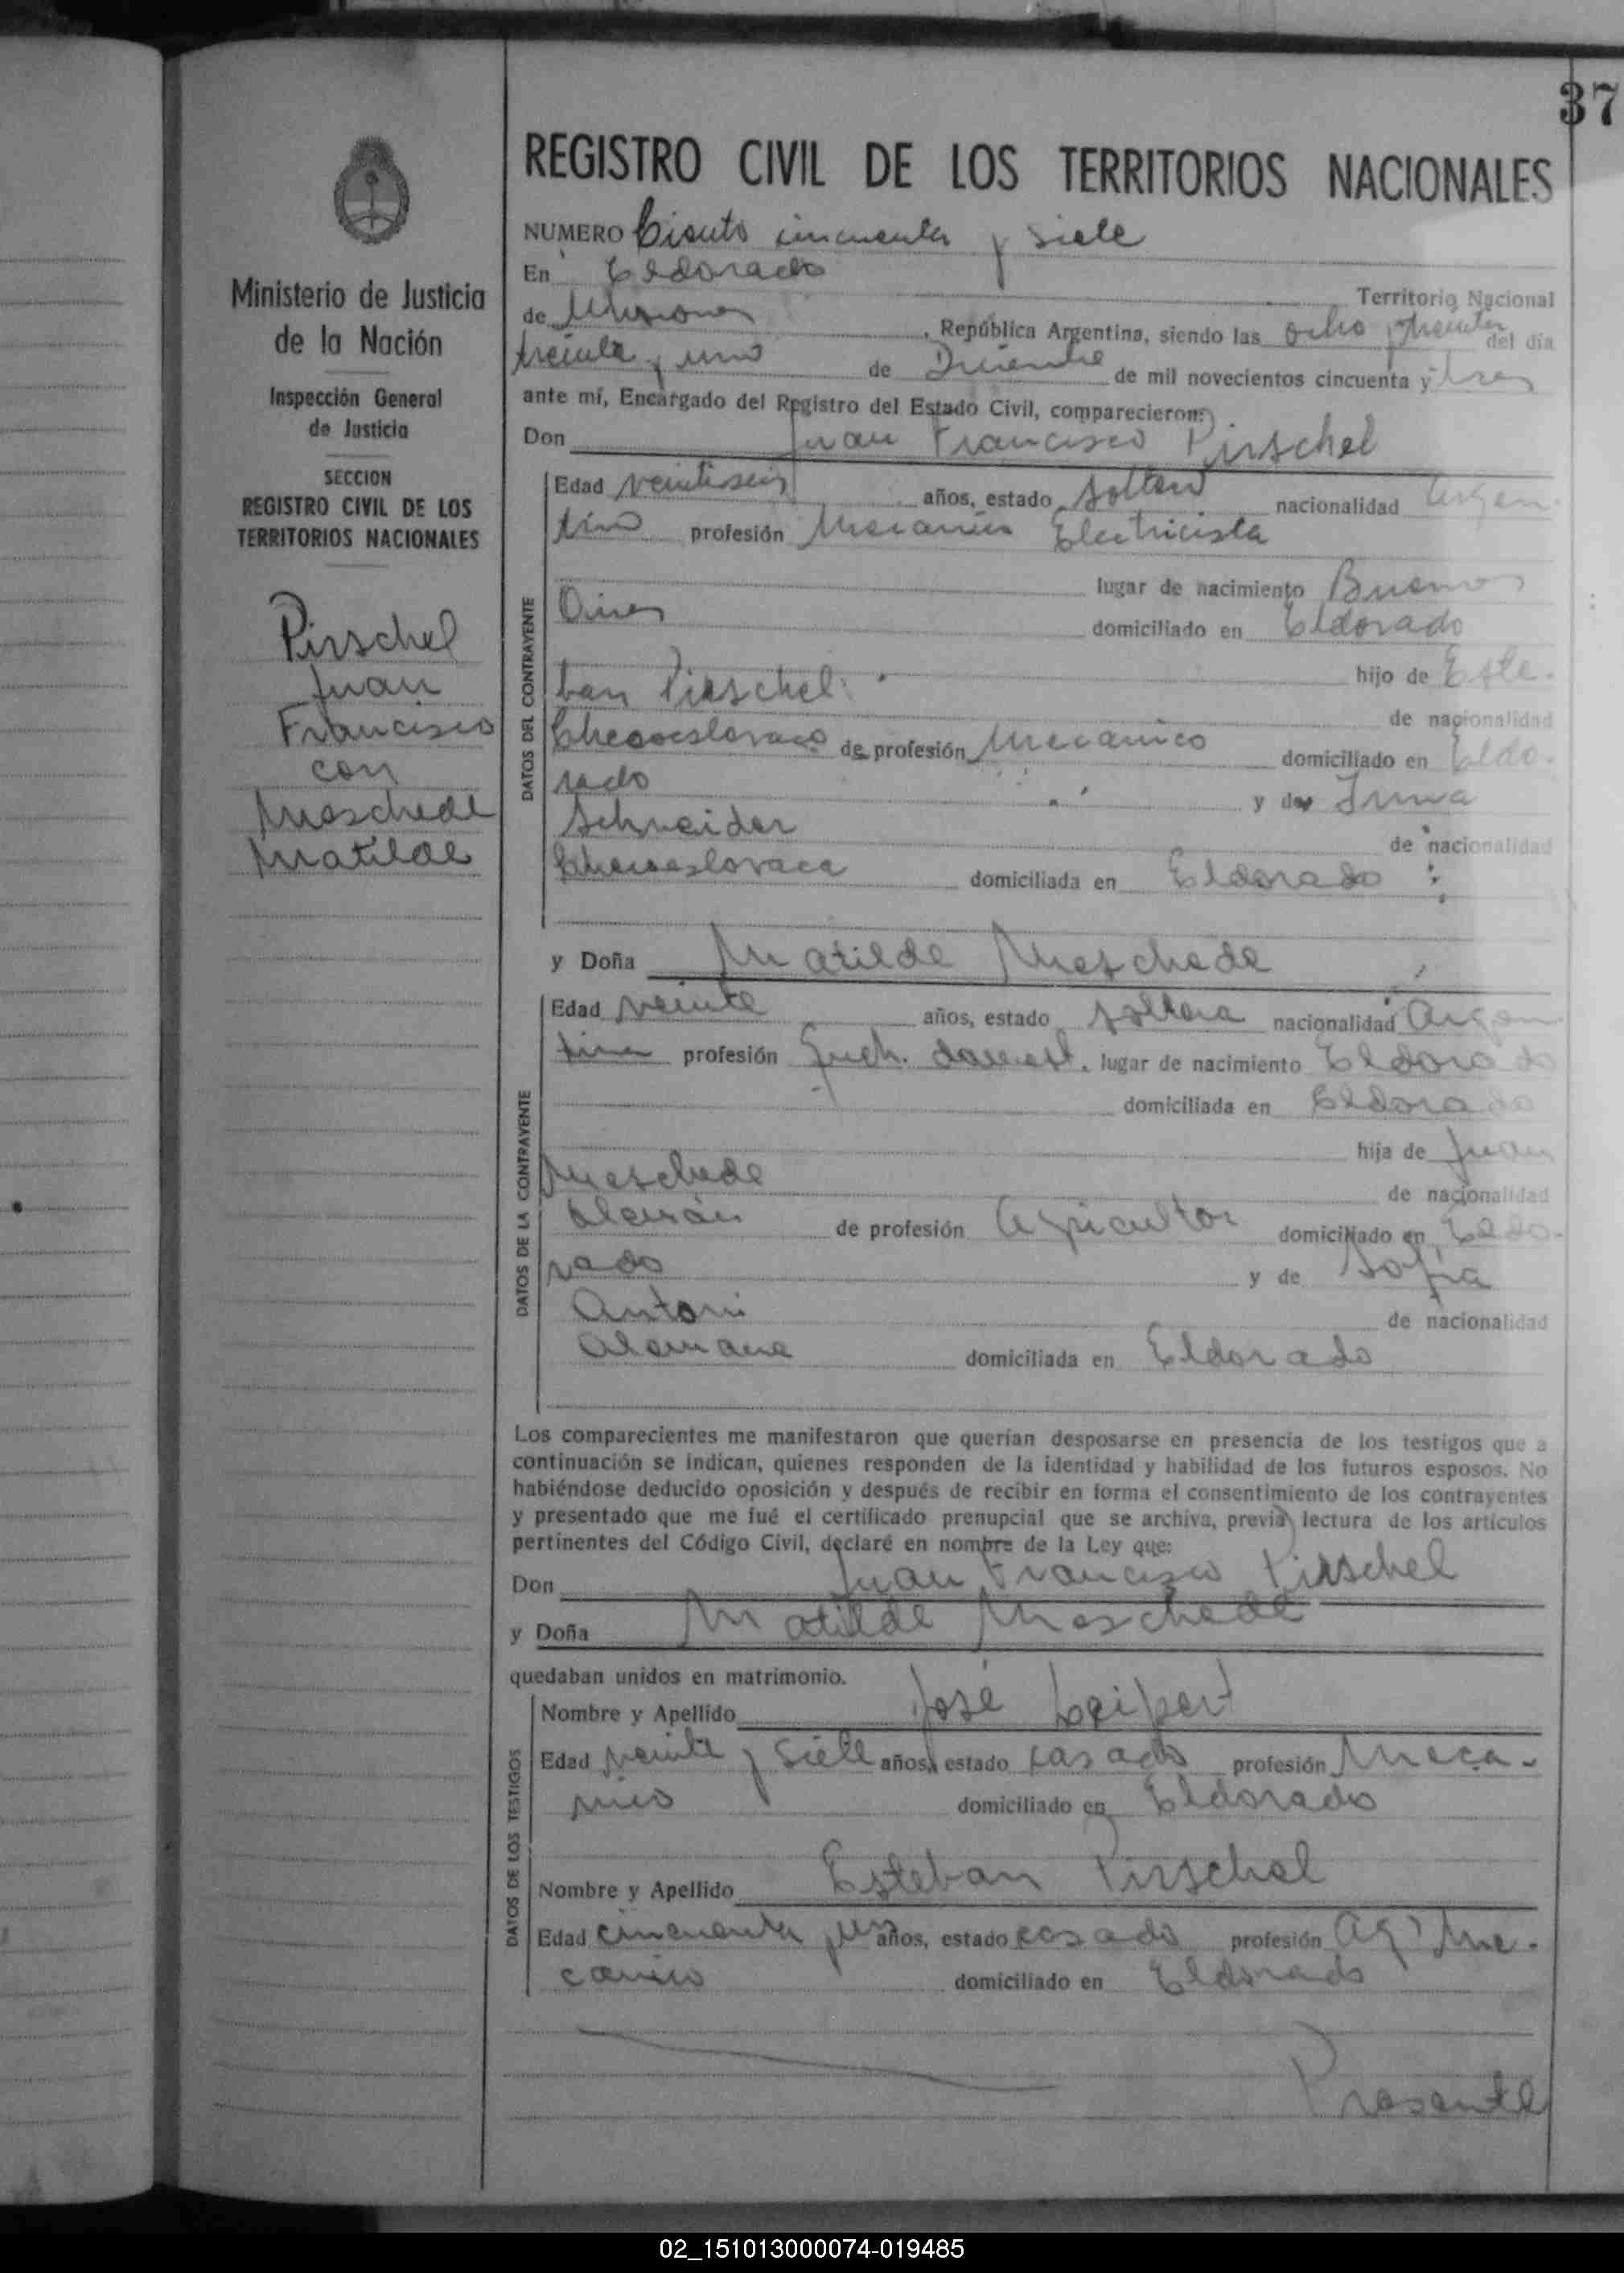 37
REGISTRO CIVIL DE LOS TERRITORIOS NACIONALES
Ministerio de Justicia
de la Nación
Inspección General
de Justicia
SECCION
REGISTRO CIVIL DE LOS
TERRITORIOS NACIONALES
Pirschel
Juan
Francisco
con
Meschede
Matilde
NUMERO Ciento cincuenta y siete
En Eldorado
Territorio Nacional
de Misiones, República Argentina, siendo las ocho y treinta del día
treinta y uno de Diciembre de mil novecientos cincuenta y tres
ante mí, Encargado del Registro del Estado Civil, comparecieron:
Don Juan Francisco Pirschel
DATOS DEL CONTRAYENTE
Edad veintiseis años, estado soltero nacionalidad Argen-
tino profesión Mecanico Electricista
lugar de nacimiento Buenos
Aires domiciliado en Eldorado
hijo de Este-
ban Pirschel
de nacionalidad
Checoeslovaco de profesión Mecanico domiciliado en Eldo-
rado y de Irma
Schneider de nacionalidad
Checoeslovaca domiciliada en Eldorado
y Doña Matilde Meschede
DATOS DE LA CONTRAYENTE
Edad veinte años, estado soltera nacionalidad Argen
tina profesión Queh. domest. lugar de nacimiento Eldorado
domiciliada en Eldorado
hija de Juan
Meschede de nacionalidad
Alemán de profesión Agricultor domiciliado en Eldo-
rado y de Sofia
Antoni de nacionalidad
Alemana domiciliada en Eldorado
Los comparecientes me manifestaron que querían desposarse en presencia de los testigos que a
continuación se indican, quienes responden de la identidad y habilidad de los futuros esposos. No
habiéndose deducido oposición y después de recibir en forma el consentimiento de los contrayentes
y presentado que me fué el certificado prenupcial que se archiva, previa lectura de los artículos
pertinentes del Código Civil, declaré en nombre de la Ley que:
Don Juan Francisco Pirschel
y Doña Matilde Meschede
quedaban unidos en matrimonio.
DATOS DE LOS TESTIGOS
Nombre y Apellido José Leipert
Edad veinte y siete años, estado casado profesión Meca-
nico domiciliado en Eldorado
Nombre y Apellido Esteban Pirschel
Edad cincuenta años, estado casado profesión Me-
canico domiciliado en Eldorado
Presente
02_151013000074-019485